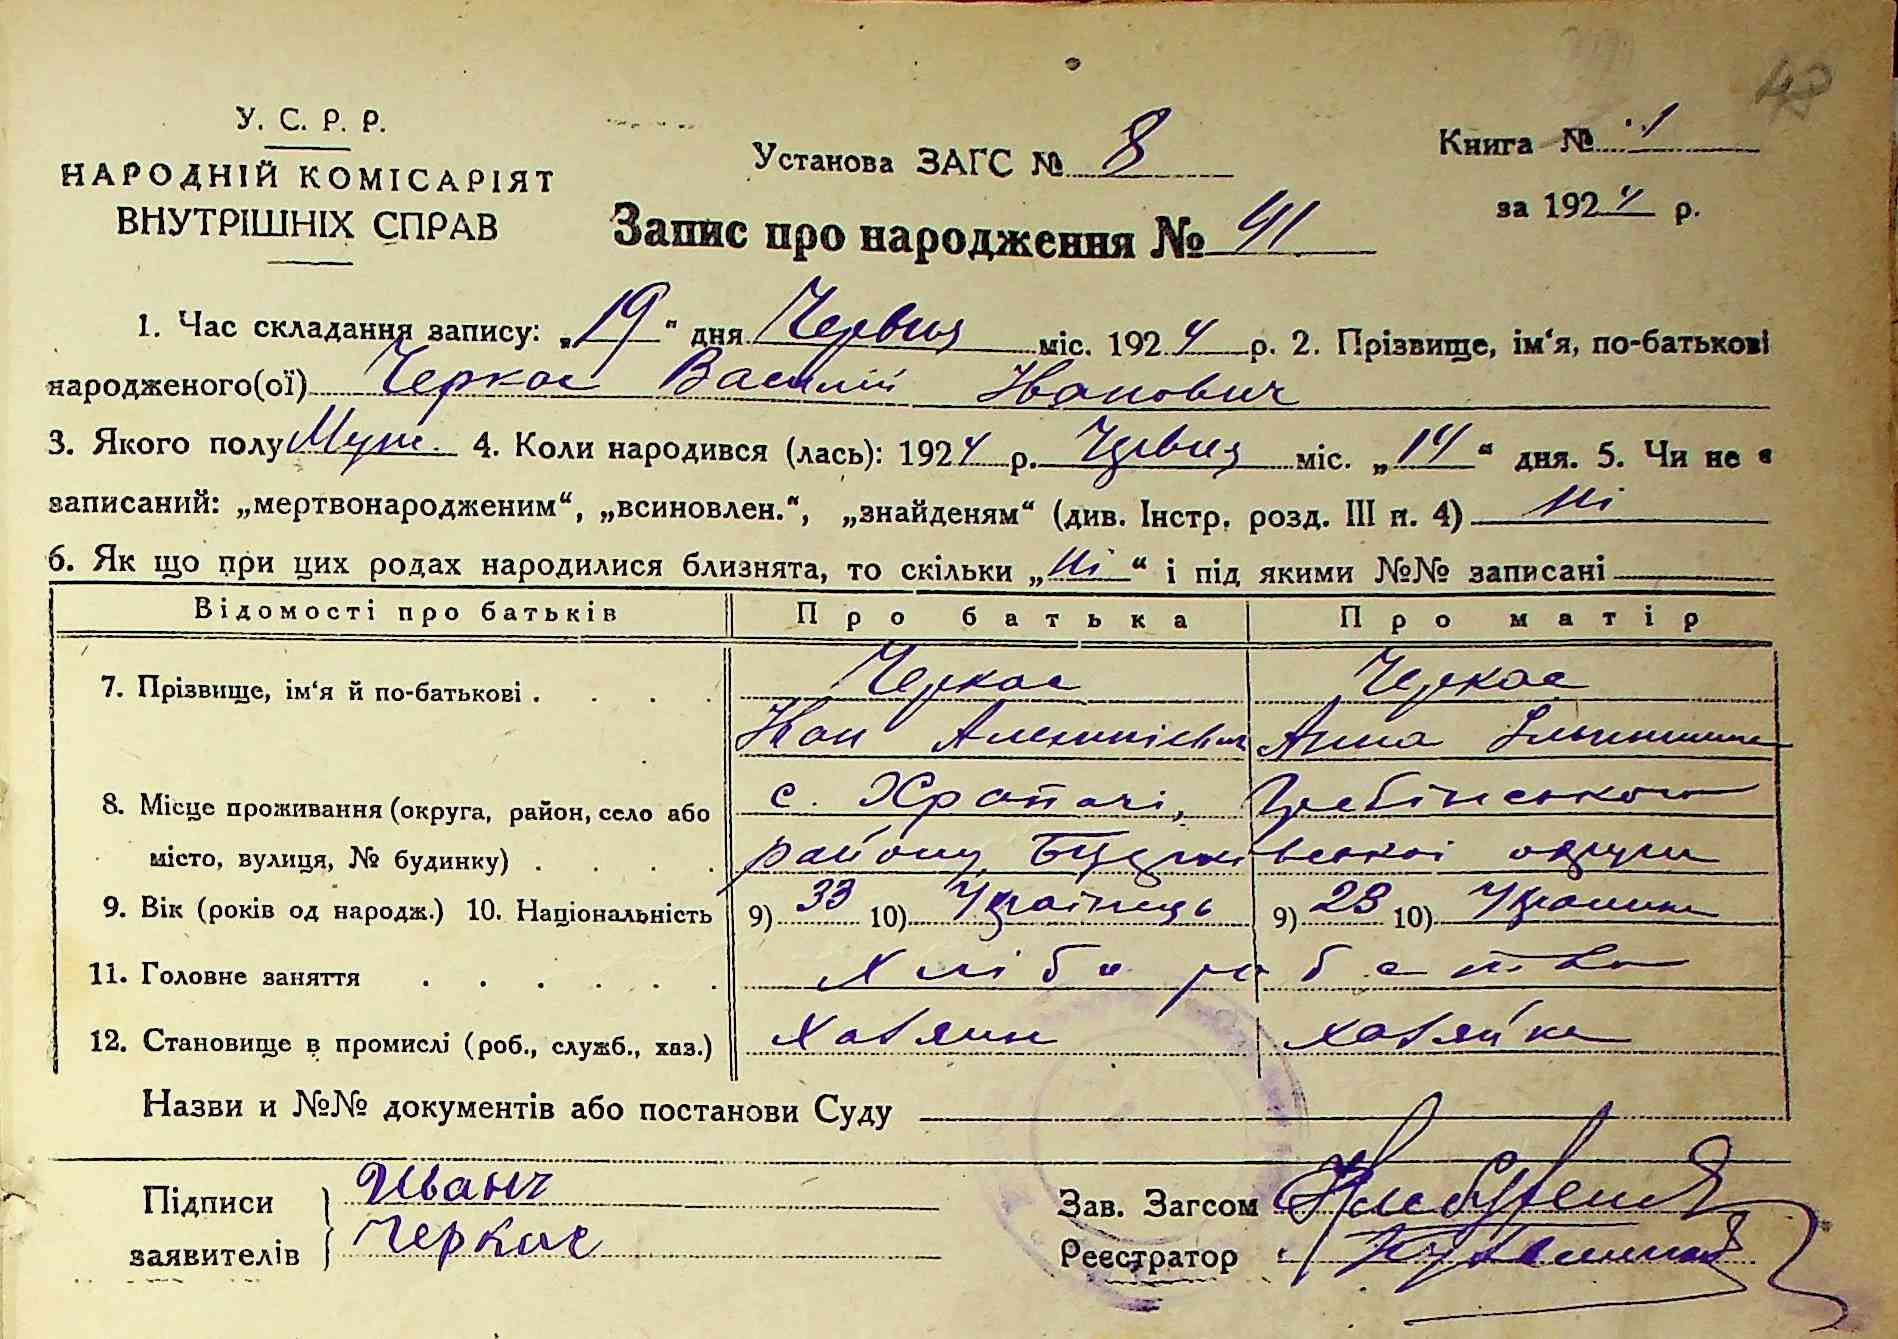 48
У. С. Р. Р.
НАРОДНІЙ КОМІСАРІЯТ
ВНУТРІШНІХ СПРАВ
Установа ЗАГС № 8
Книга № 1
за 1924 р.
Запис про народження № 41
1. Час складання запису: „19“ дня Червня міс. 1924 р. 2. Прізвище, ім‘я, по-батькові
народженого(ої) Черкас Василій Іванович
3. Якого полу Муж. 4. Коли народився (лась): 1924 р. Червня міс. „14“ дня. 5. Чи не є
записаний: „мертвонародженим“, „всиновлен.“, „знайденям“ (див. Інстр. розд. III п. 4) Ні
6. Як що при цих родах народилися близнята, то скільки „Ні“ і під якими №№ записані
Відомості про батьків Про батька Про матір
7. Прізвище, ім‘я й по-батькові . . . . Черкас Черкас
Іван Анна
8. Місце проживання (округа, район, село або с. Храпачі, Гребінського
місто, вулиця, № будинку) . . . . району, Білоцерківської округи
9. Вік (років од народж.) 10. Національність 9) 33 10) Українець 9) 23 10) Українка
11. Головне заняття . . . . . . Хліборобство
12. Становище в промислі (роб., служб., хаз.) хазяин хазяйка
Назви и №№ документів або постанови Суду
Підписи Иванъ
заявителів Черкас
Зав. Загсом
Реєстратор